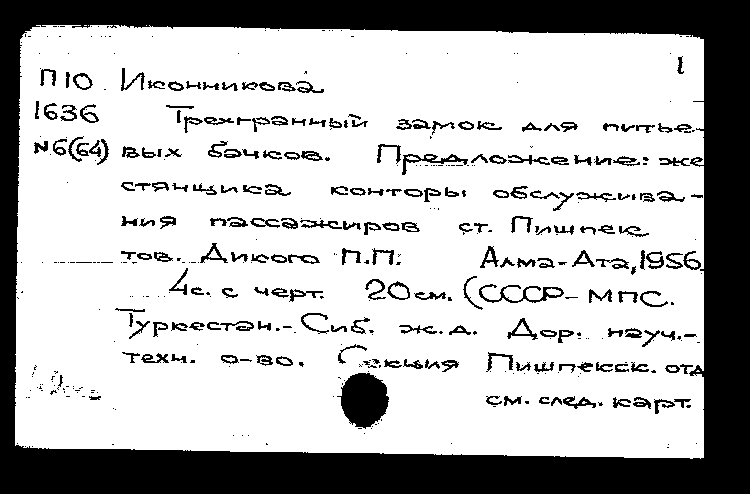 1
П10 Иконникова
1636 Трехгранный замок для питье-
№6(64) вых бачков. Предложение: же
стянщика конторы обслужива-
ния пассажиров ст. Пишпек
тов. Дикого П.П. Алма-Ата, 1956.
4с. с черт. 20см. (СССР-МПС.
Туркестан.-Сиб. ж.д. Дор. науч.-
техн. о-во. Секция Пишпекск. отд
см. след. карт.